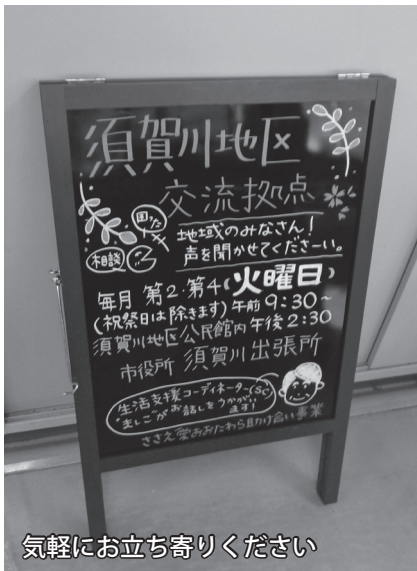 須賀川地区
交流拠点
困った
相談
地域のみなさん!
声を聞かせてくださーい。
毎月 第2・第4(火曜日)
(祝祭日は除きます)午前9:30~
須賀川地区公民館内 午後2:30
市役所 須賀川出張所
生活支援コーディネーター(SC)
がお話しをうかがい
ます!
ささえ愛おおたわら助け合い事業
気軽にお立ち寄りください